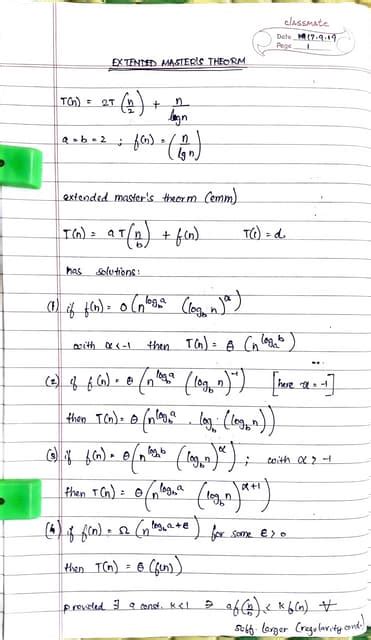 classmate
Date 17.9.19
Page 1
EXTENDED MASTER'S THEORM
T(n) = 2T (n/2) + n/logn
a=b=2 ; f(n) = (n/lgn)
extended master's theorm (emm)
T(n) = aT(n/b) + f(n) T(1) = d
has solutions:
(1) if f(n) = O(n^log_b a (log_b n)^α)
with α<-1 then T(n) = θ (n^log_a b)
(2) if f(n) = θ (n^log_b a (log_b n)^-1) [here α = -1]
then T(n) = θ (n^log_b a . log_b (log_b n))
(3) if f(n) = θ (n^log_a b (log_b n)^α) ; with α > -1
then T(n) = θ (n^log_b a (log_b n)^α+1)
(4) if f(n) = Ω (n^log_b a+ε) for some ε>0
then T(n) = θ (f(n))
provided ∃ a const. k<1 ∋ af(n/b) < k f(n) ∀
suff. larger (regolarity cond.)